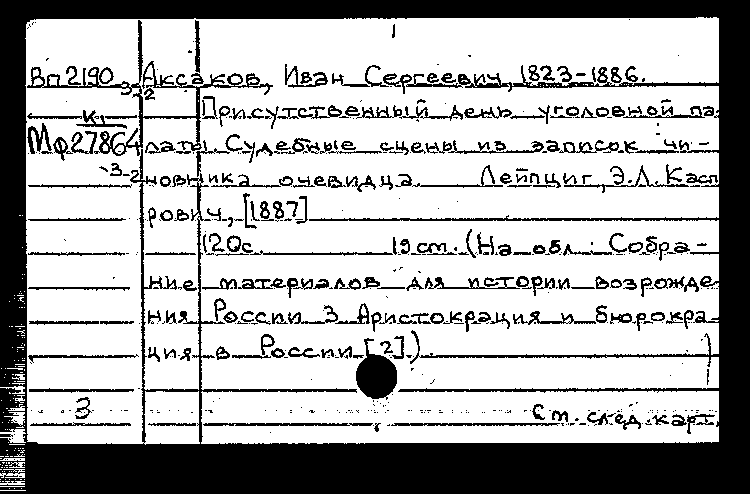 Вп2190 Аксаков, Иван Сергеевич, 1823-1886.
3-2
Присутственный день уголовной па-
К1
Мф27864 латы. Судебные сцены из записок чи-
3-2 новника очевидца. Лейпциг, Э.Л. Касп
рович, [1887]
120с. 19 cm. (На обл.: Собра-
ние материалов для истории возрожде
ния России 3 Аристокрация и бюрокра-
ция в России [2]).
3 См. след. карт.